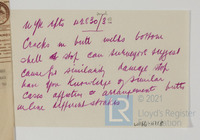 Cracks in butt welds bottom
shell
stop can surveyors suggest
cause for similar damage
have you knowledge of similar
cases affection or arrangement butts
in line different strakes
Lloyd's Register
Foundation